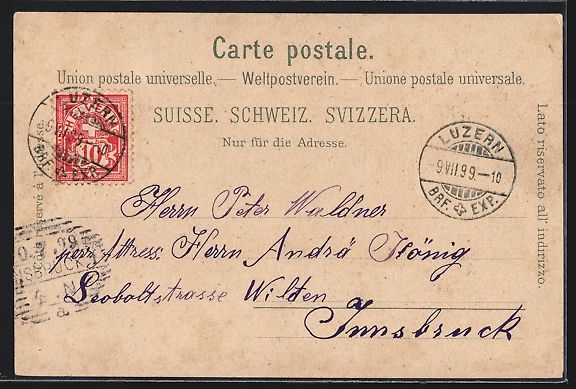 Carte postale.
Union postale universelle. — Weltpostverein. — Unione postale universale.
SUISSE. SCHWEIZ. SVIZZERA.
Nur für die Adresse.
Côté réservé à l'adresse.
Lato riservato all' indirizzo.
HELVETIA
10
LUZERN
BRF. EXP.
LUZERN
9.VII.99.—10
BRF. EXP.
Herrn Peter Waldner
per Attress: Herrn Andrä König
Leoboltstrasse Wilten
Innsbruck
99
4. N
a